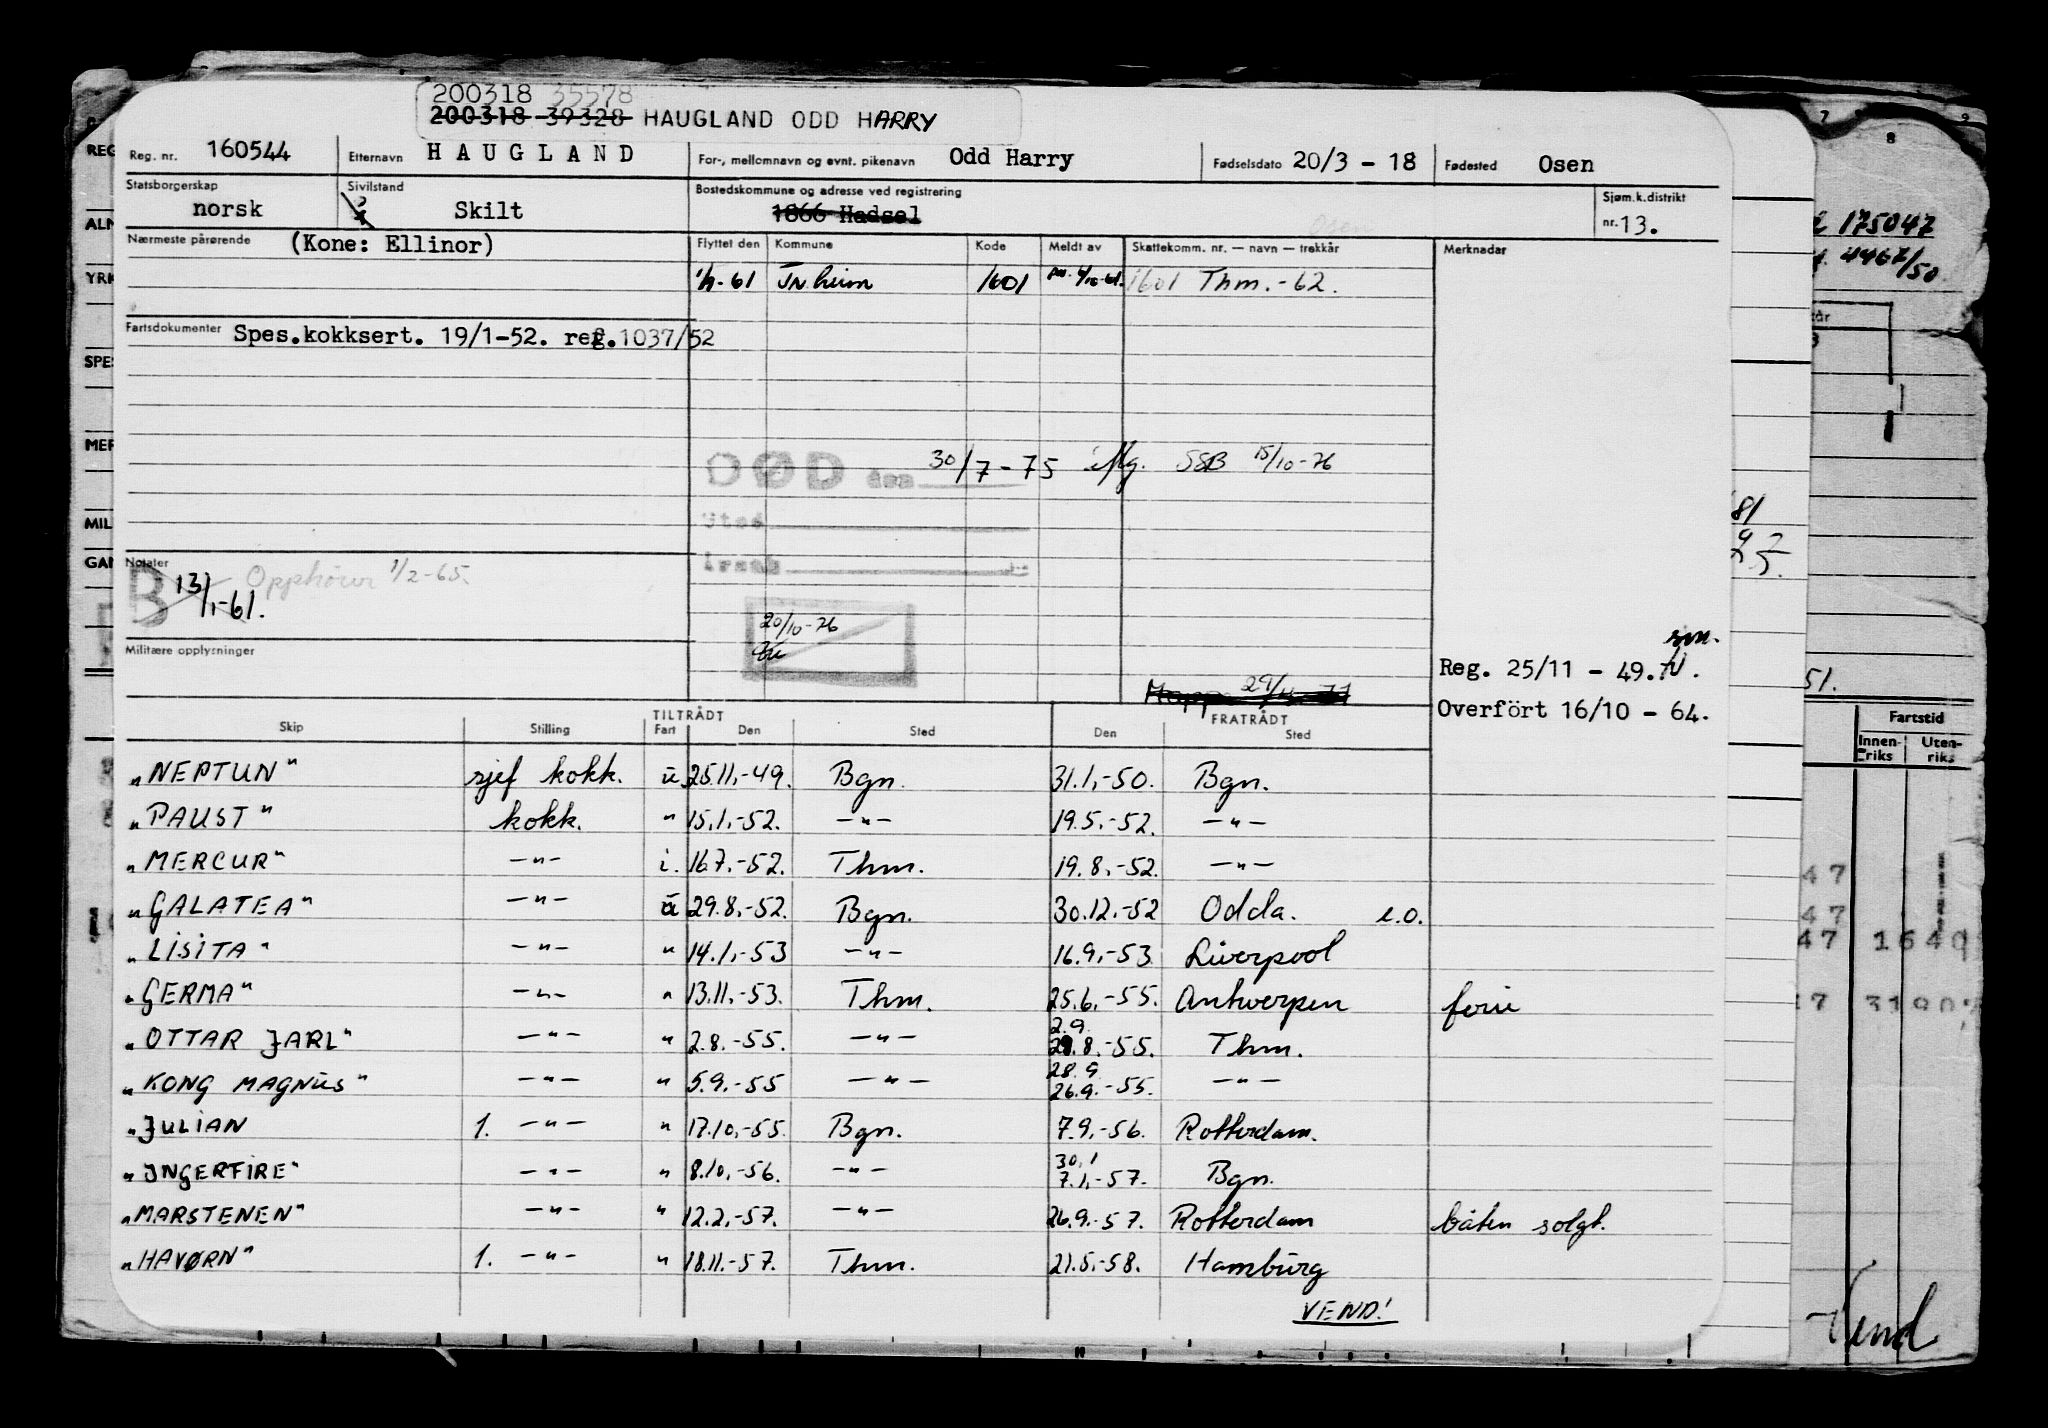 200318 35578
200318 39328 HAUGLAND ODD HARRY
Reg. nr. 160544 Etternavn HAUGLAND For-, mellomnavn og evnt. pikenavn Odd Harry Fødselsdato 20/3 - 18 Fødested Osen
Statsborgerskap norsk Sivilstand Skilt Bostedskommune og adresse ved registrering 1866 Hadsel Sjøm.k.distrikt nr. 13.
Nærmeste pårørende (Kone: Ellinor) Flyttet den Kommune Kode Meldt av Skattekomm. nr. — navn — trekkår Merknader
-61 Tr.heim 1601 1601 Thm.-62.
Fartsdokumenter Spes.kokksert. 19/1-52. reg.1037/52
DØD den 30/7-75 SSB 15/10-76
Sted
Årsak
Notater B 13/1-61. Opphører 1/2-65.
20/10-76
Militære opplysninger
Reg. 25/11 - 49.
Overfört 16/10 - 64.
Skip Stilling TILTRÅDT Fart Den Sted FRATRÅDT Den Sted
"NEPTUN" sjef kokk. u. 25.11.-49. Bgn. 31.1.-50. Bgn.
"PAUST" kokk. " 15.1.-52. —"— 19.5.-52. —"—
"MERCUR" —"— i. 16.7.-52. Thm. 19.8.-52. —"—
"GALATEA" —"— u 29.8.-52. Bgn. 30.12.-52 Odda. e.o.
"LISITA" —"— " 14.1.-53 —"— 16.9.-53 Liverpool
"GERMA" —"— " 13.11.-53. Thm. 25.6.-55. Antwerpen ferie
"OTTAR JARL" —"— " 2.8.-55. —"— 2.9. 8.-55. Thm.
"KONG MAGNUS" —"— " 5.9.-55 —"— 28.9 26.9.-55. —"—
"JULIAN 1. —"— " 17.10.-55. Bgn. 7.9.-56. Rotterdam.
"INGERFIRE" —"— " 8.10.-56. —"— 30.1 7.1.-57. Bgn.
"MARSTENEN" —"— " 12.2.-57. —"— 26.9.-57. Rotterdam båten solgt.
"HAVØRN" 1. —"— " 18.11.-57. Thm. 21.5.-58. Hamburg
VEND!
7 8 9
175047
4467/50
Fartstid
Innenriks Utenriks
47
47
47 1640
Vend